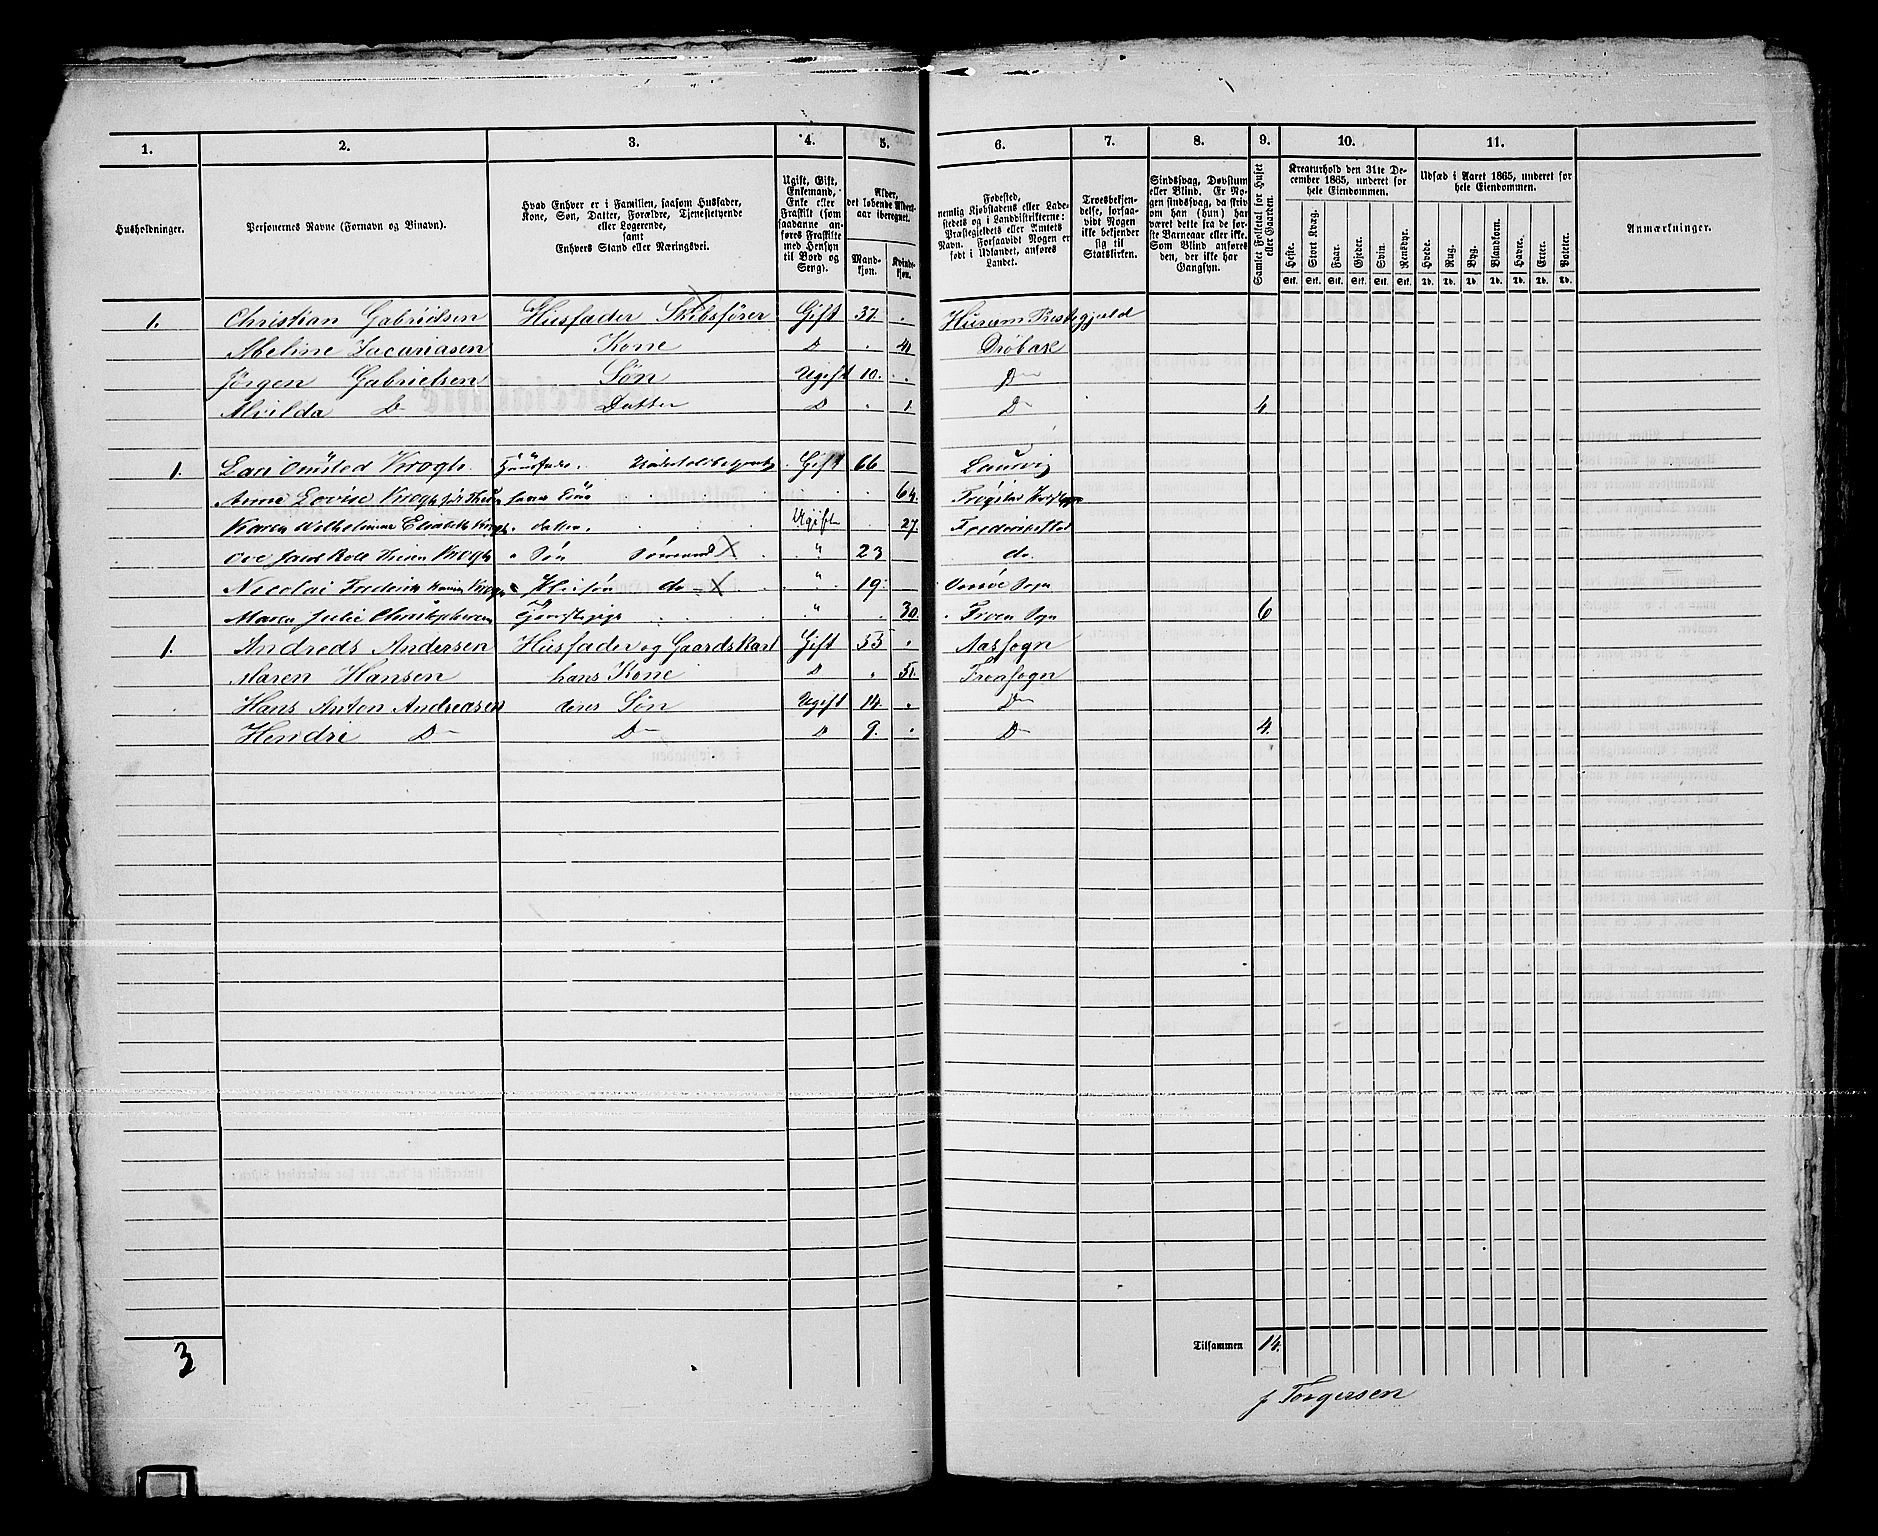 1. 2. 3. 4. 5. 6. 7. 8. 9. 10. 11.
Husholdninger.
Personernes Navne (Fornavn og Binavn).
Hvad Enhver er i Familien, saasom Husfader,
Kone, Søn, Datter, Forældre, Tjenestetyende
eller Logerende,
samt
Enhvers Stand eller Næringsvei.
Ugift, Gift,
Enkemand,
Enke eller
Fraskilt (som
saadanne an-
føres Fraskilte
med Hensyn
til Bord og
Seng).
Alder,
det løbende Alders-
aar iberegnet.
Mand-
kjøn.
Kvinde-
kjøn.
Fødested,
nemlig Kjøbstadens eller Lade-
stedets og i Landdistrikterne:
Præstegjeldets eller Amtets
Navn. Forsaavidt Nogen er
født i Udlandet, anføres
Landet.
Troesbekjen-
delse, forsaa-
vidt Nogen
ikke bekjender
sig til
Statskirken.
Sindssvag, Døvstum
eller Blind. Er No-
gen sindssvag, da skrives,
om han (hun) har
været dette fra de før-
ste Barneaar eller ikke.
Som Blind anføres
den, der ikke har
Gangsyn.
Samlet Folketal for Huset
eller Gaarden.
Kreaturhold den 31te De-
cember 1865, underet for
hele Eiendommen.
Heste. Stort Kvæg. Faar. Gjeder. Svin. Rensdyr.
Stk. Stk. Stk. Stk. Stk. Stk.
Udsæd i Aaret 1865, underet for
hele Eiendommen.
Hvede. Rug. Byg. Blandkorn. Havre. Erter. Poteter.
Td. Td. Td. Td. Td. Td. Td.
Anmærkninger.
1. Christian Gabrielsen Husfader Skibsfører Gift 37. Hurum Prestegjeld
Abeline Zacariasen Kone D 41 Drøbak
Jørgen Gabrielsen Søn Ugift 10. D
Alvilda D Datter D 1. D 4
1. Omsted Krogh Huusfader Gift 66 Laurvig
Anne Lovise Krogh 64.
Karen Wilhelmine Elisabeth Krogh datter Ugift 27. Frederikstad
Ove Krogh Søn Sømand " 23 do.
Nicolai Frederik Krogh do " 19. Sogn
Maren Julie Christophersen Tjenestepige " 30. Froen Sogn 6
1. Andreas Andersen Husfader og Gaardskarl Gift 55 Aassogn
Maren Hansen hans Kone D 51. Fronsogn
Hans Anton Andreasen deres Søn Ugift 14. D
Hendri D D D 9. D 4.
Tilsammen 14.
3
J Torgersen